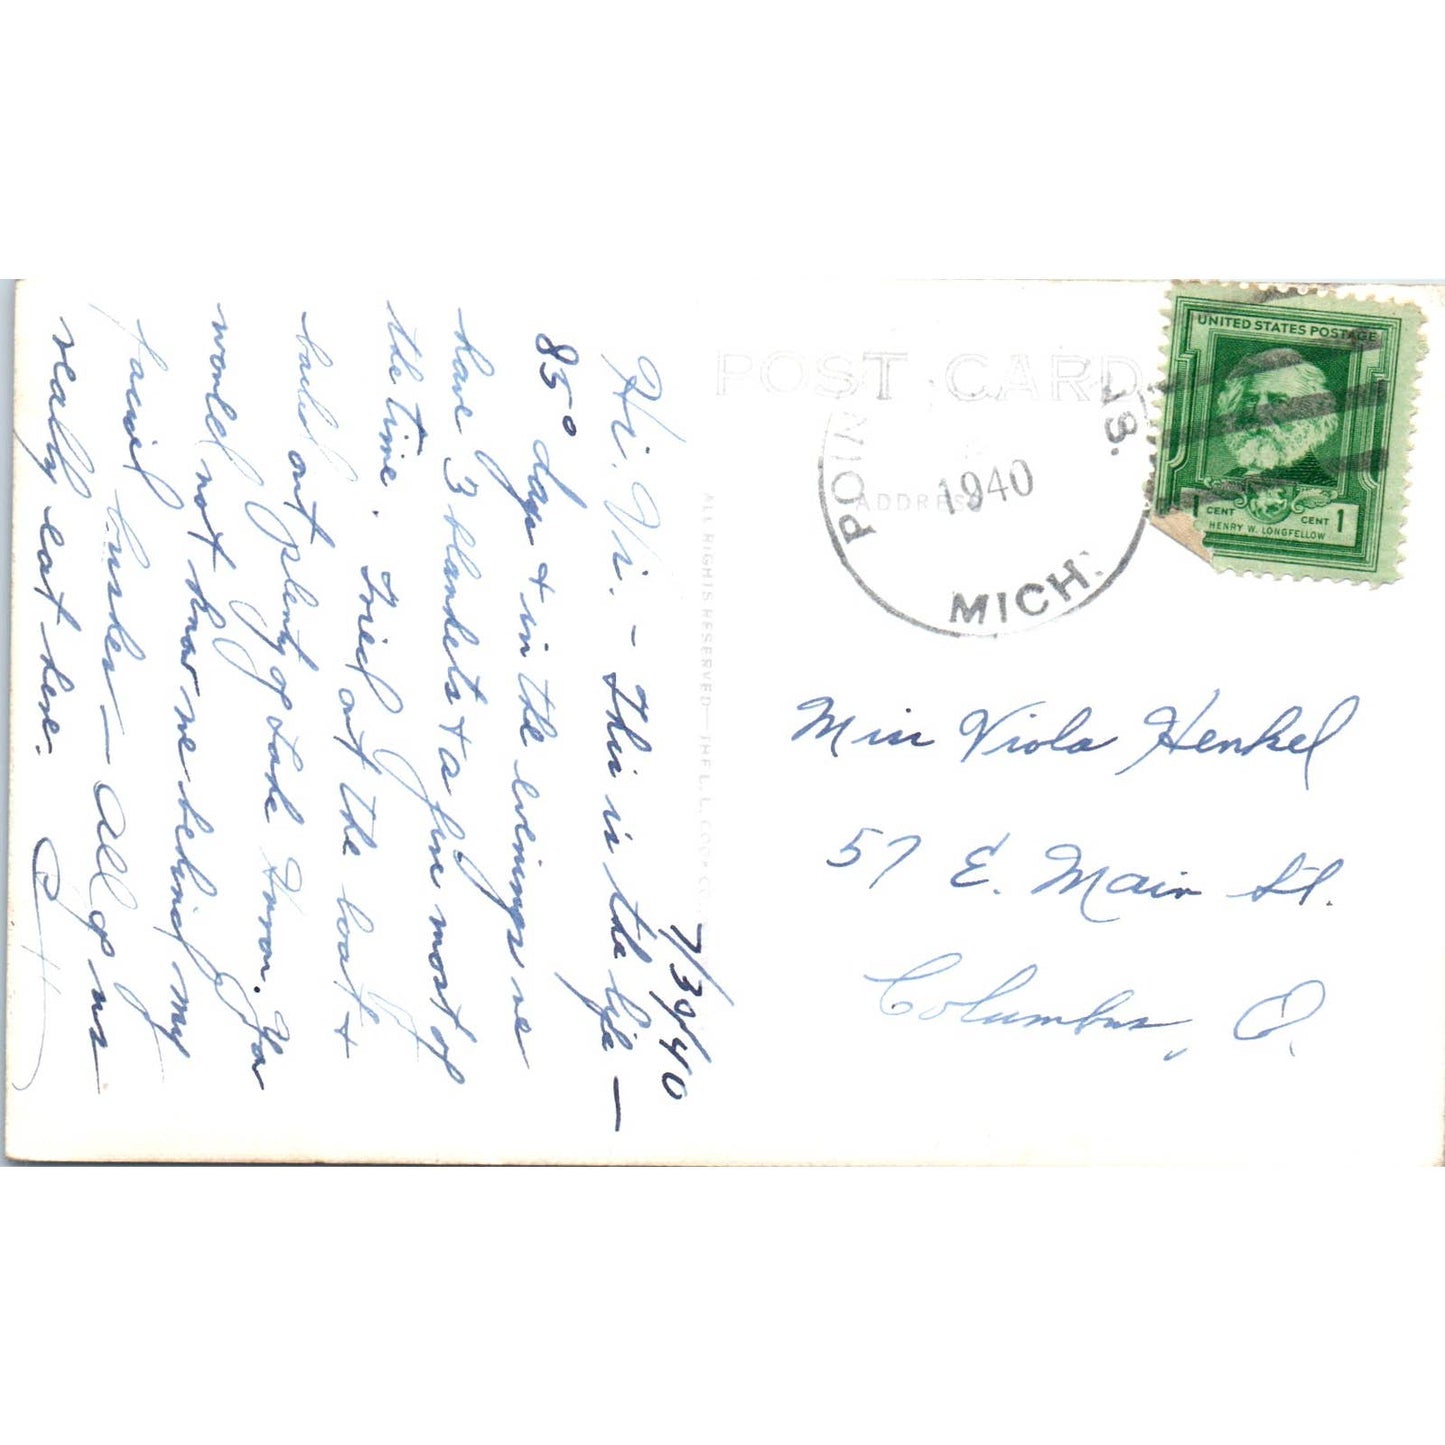 7/30/40
Hi. Vi. - This is the life -
85° day + in the evenings we
have 3 blankets + a fire most of
the time. Tried out the boat +
bailed out plenty of Lake Huron. You
would not know me behind my
facial bushes - All of us
really eat here.
POST CARD
ADDRESS
ALL RIGHTS RESERVED - THE L. L. COOK CO.
POIN
1940
MICH.
UNITED STATES POSTAGE
1 CENT CENT 1
HENRY W. LONGFELLOW
Miss Viola Henkel
57 E. Main St.
Columbus, O.